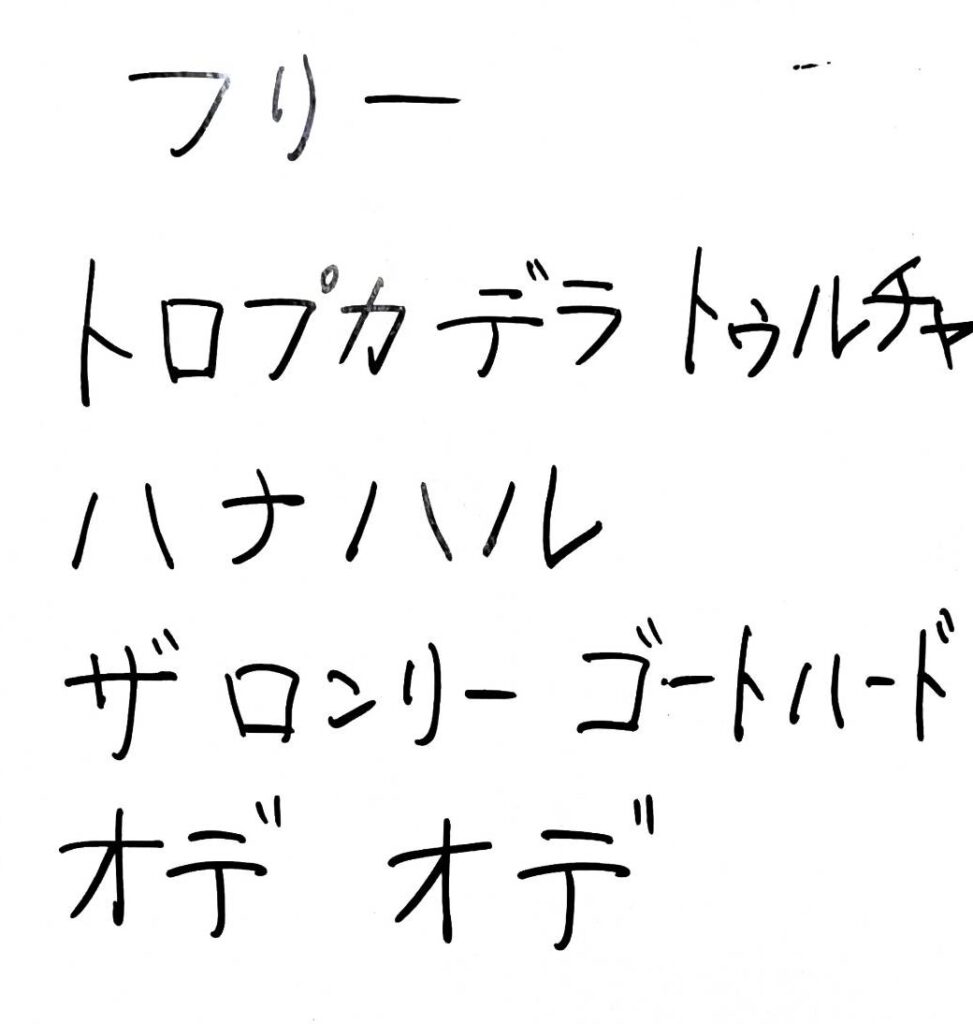 フリー
トロプカ デラ トゥルチャ
ハナハル
ザ ロンリー ゴートハード
オデ オデ